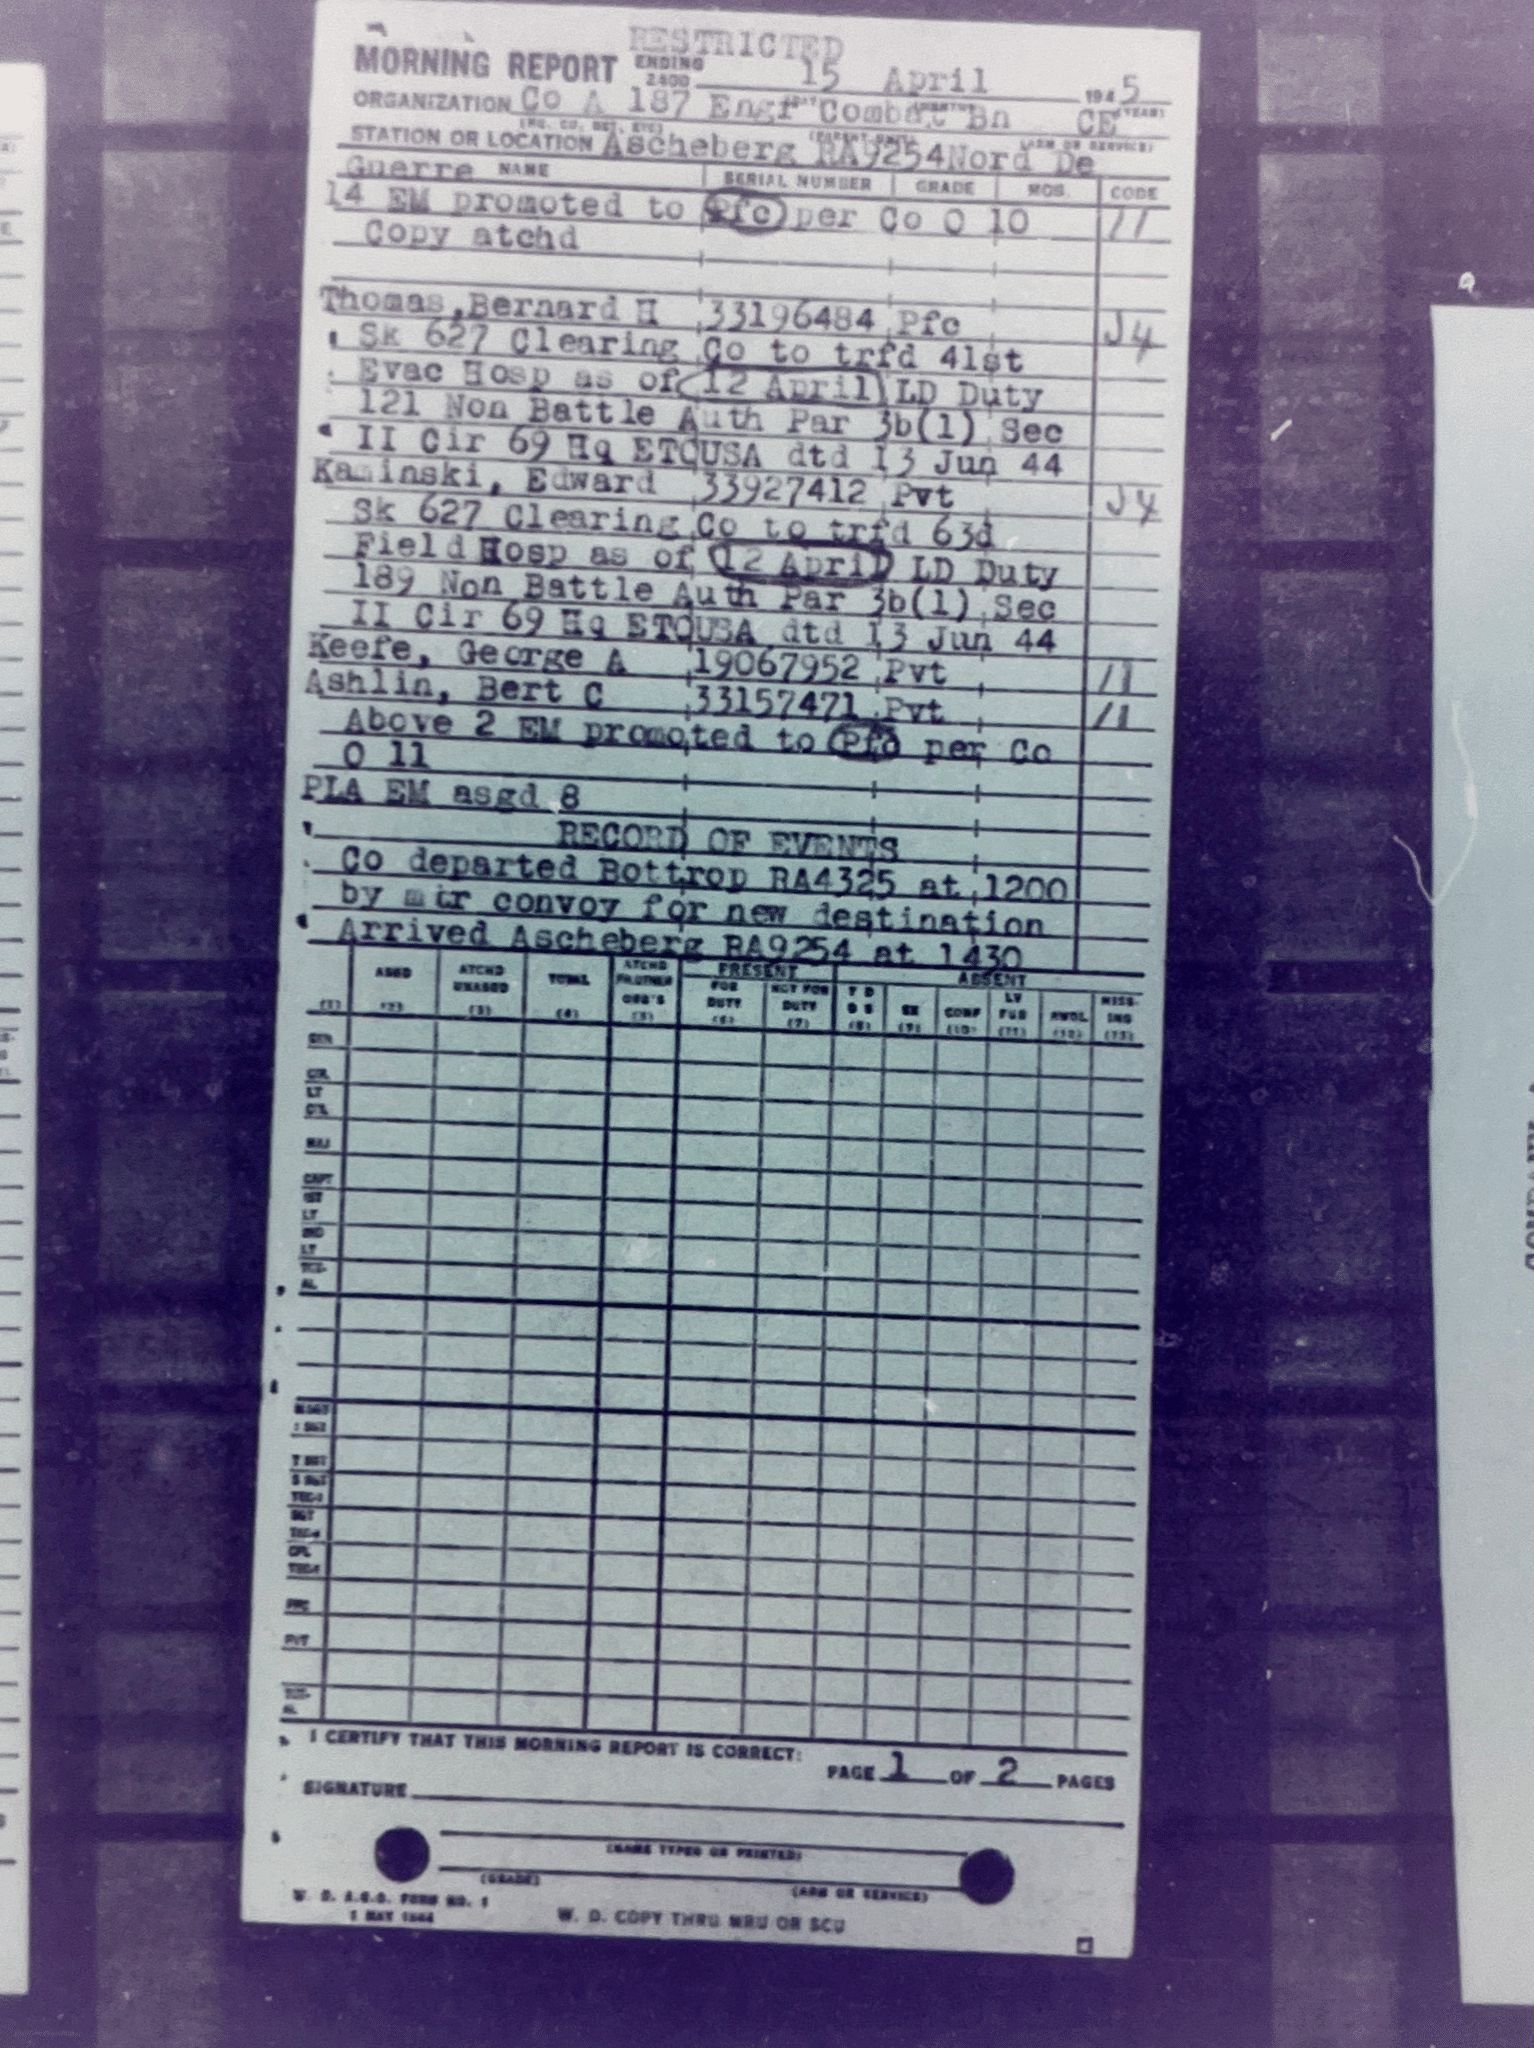 RESTRICTED
MORNING REPORT ENDING 2400 15 April 1945
ORGANIZATION Co A 187 Engr Combat Bn CE
STATION OR LOCATION Ascheberg RA9254 Nord De
Guerre NAME SERIAL NUMBER GRADE MOS. CODE
14 EM promoted to Pfc per Co O 10 11
Copy atchd
Thomas, Bernard H 33196484 Pfc J4
Sk 627 Clearing Co to trfd 41st
Evac Hosp as of 12 April LD Duty
121 Non Battle Auth Par 3b(1) Sec
II Cir 69 Hq ETOUSA dtd 13 Jun 44
Kaminski, Edward 33927412 Pvt J4
Sk 627 Clearing Co to trfd 63d
Field Hosp as of 12 April LD Duty
189 Non Battle Auth Par 3b(1) Sec
II Cir 69 Hq ETOUSA dtd 13 Jun 44
Keefe, George A 19067952 Pvt 11
Ashlin, Bert C 33157471 Pvt 11
Above 2 EM promoted to Pfc per Co
O 11
PLA EM asgd 8
RECORD OF EVENTS
Co departed Bottrop RA4325 at 1200
by mtr convoy for new destination
Arrived Ascheberg RA9254 at 1430
PRESENT ABSENT
(1) ASGD (2) ATCHD UNASGD (3) TOTAL (4) ATCHD FR OTHER ORG'S (5) FOR DUTY (6) NOT FOR DUTY (7) T D D S (8) SK (9) CONF (10) LV FUR (11) AWOL (12) MISSING (13)
GEN
COL
LT
COL
MAJ
CAPT
1ST
LT
2ND
LT
TOT-
AL
M SGT
1 SGT
T SGT
S SGT
TEC-3
SGT
TEC-4
CPL
TEC-5
PFC
PVT
TOT-
AL
I CERTIFY THAT THIS MORNING REPORT IS CORRECT:
PAGE 1 OF 2 PAGES
SIGNATURE
(NAME TYPED OR PRINTED)
(GRADE) (ARM OR SERVICE)
W. D. A.G.O. FORM NO. 1
1 MAY 1944
W. D. COPY THRU MRU OR SCU